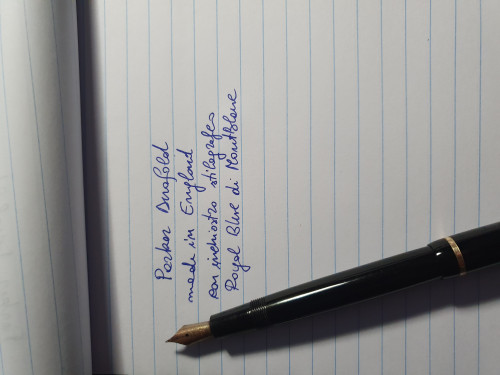 Parker Duofold
made in England
con inchiostro stilografico
Royal Blue di Montblanc